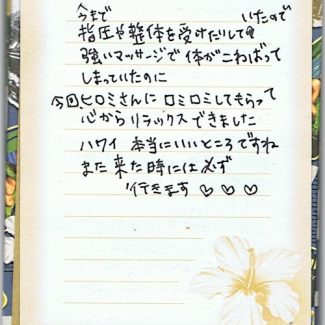 今まで いたので
指圧や整体を受けたりして
強いマッサージで体がこわばって
しまっていたのに
今回ヒロミさんにロミロミしてもらって
心からリラックスできました
ハワイ 本当にいいところですね
また来た時には必ず
行きます ♡♡♡